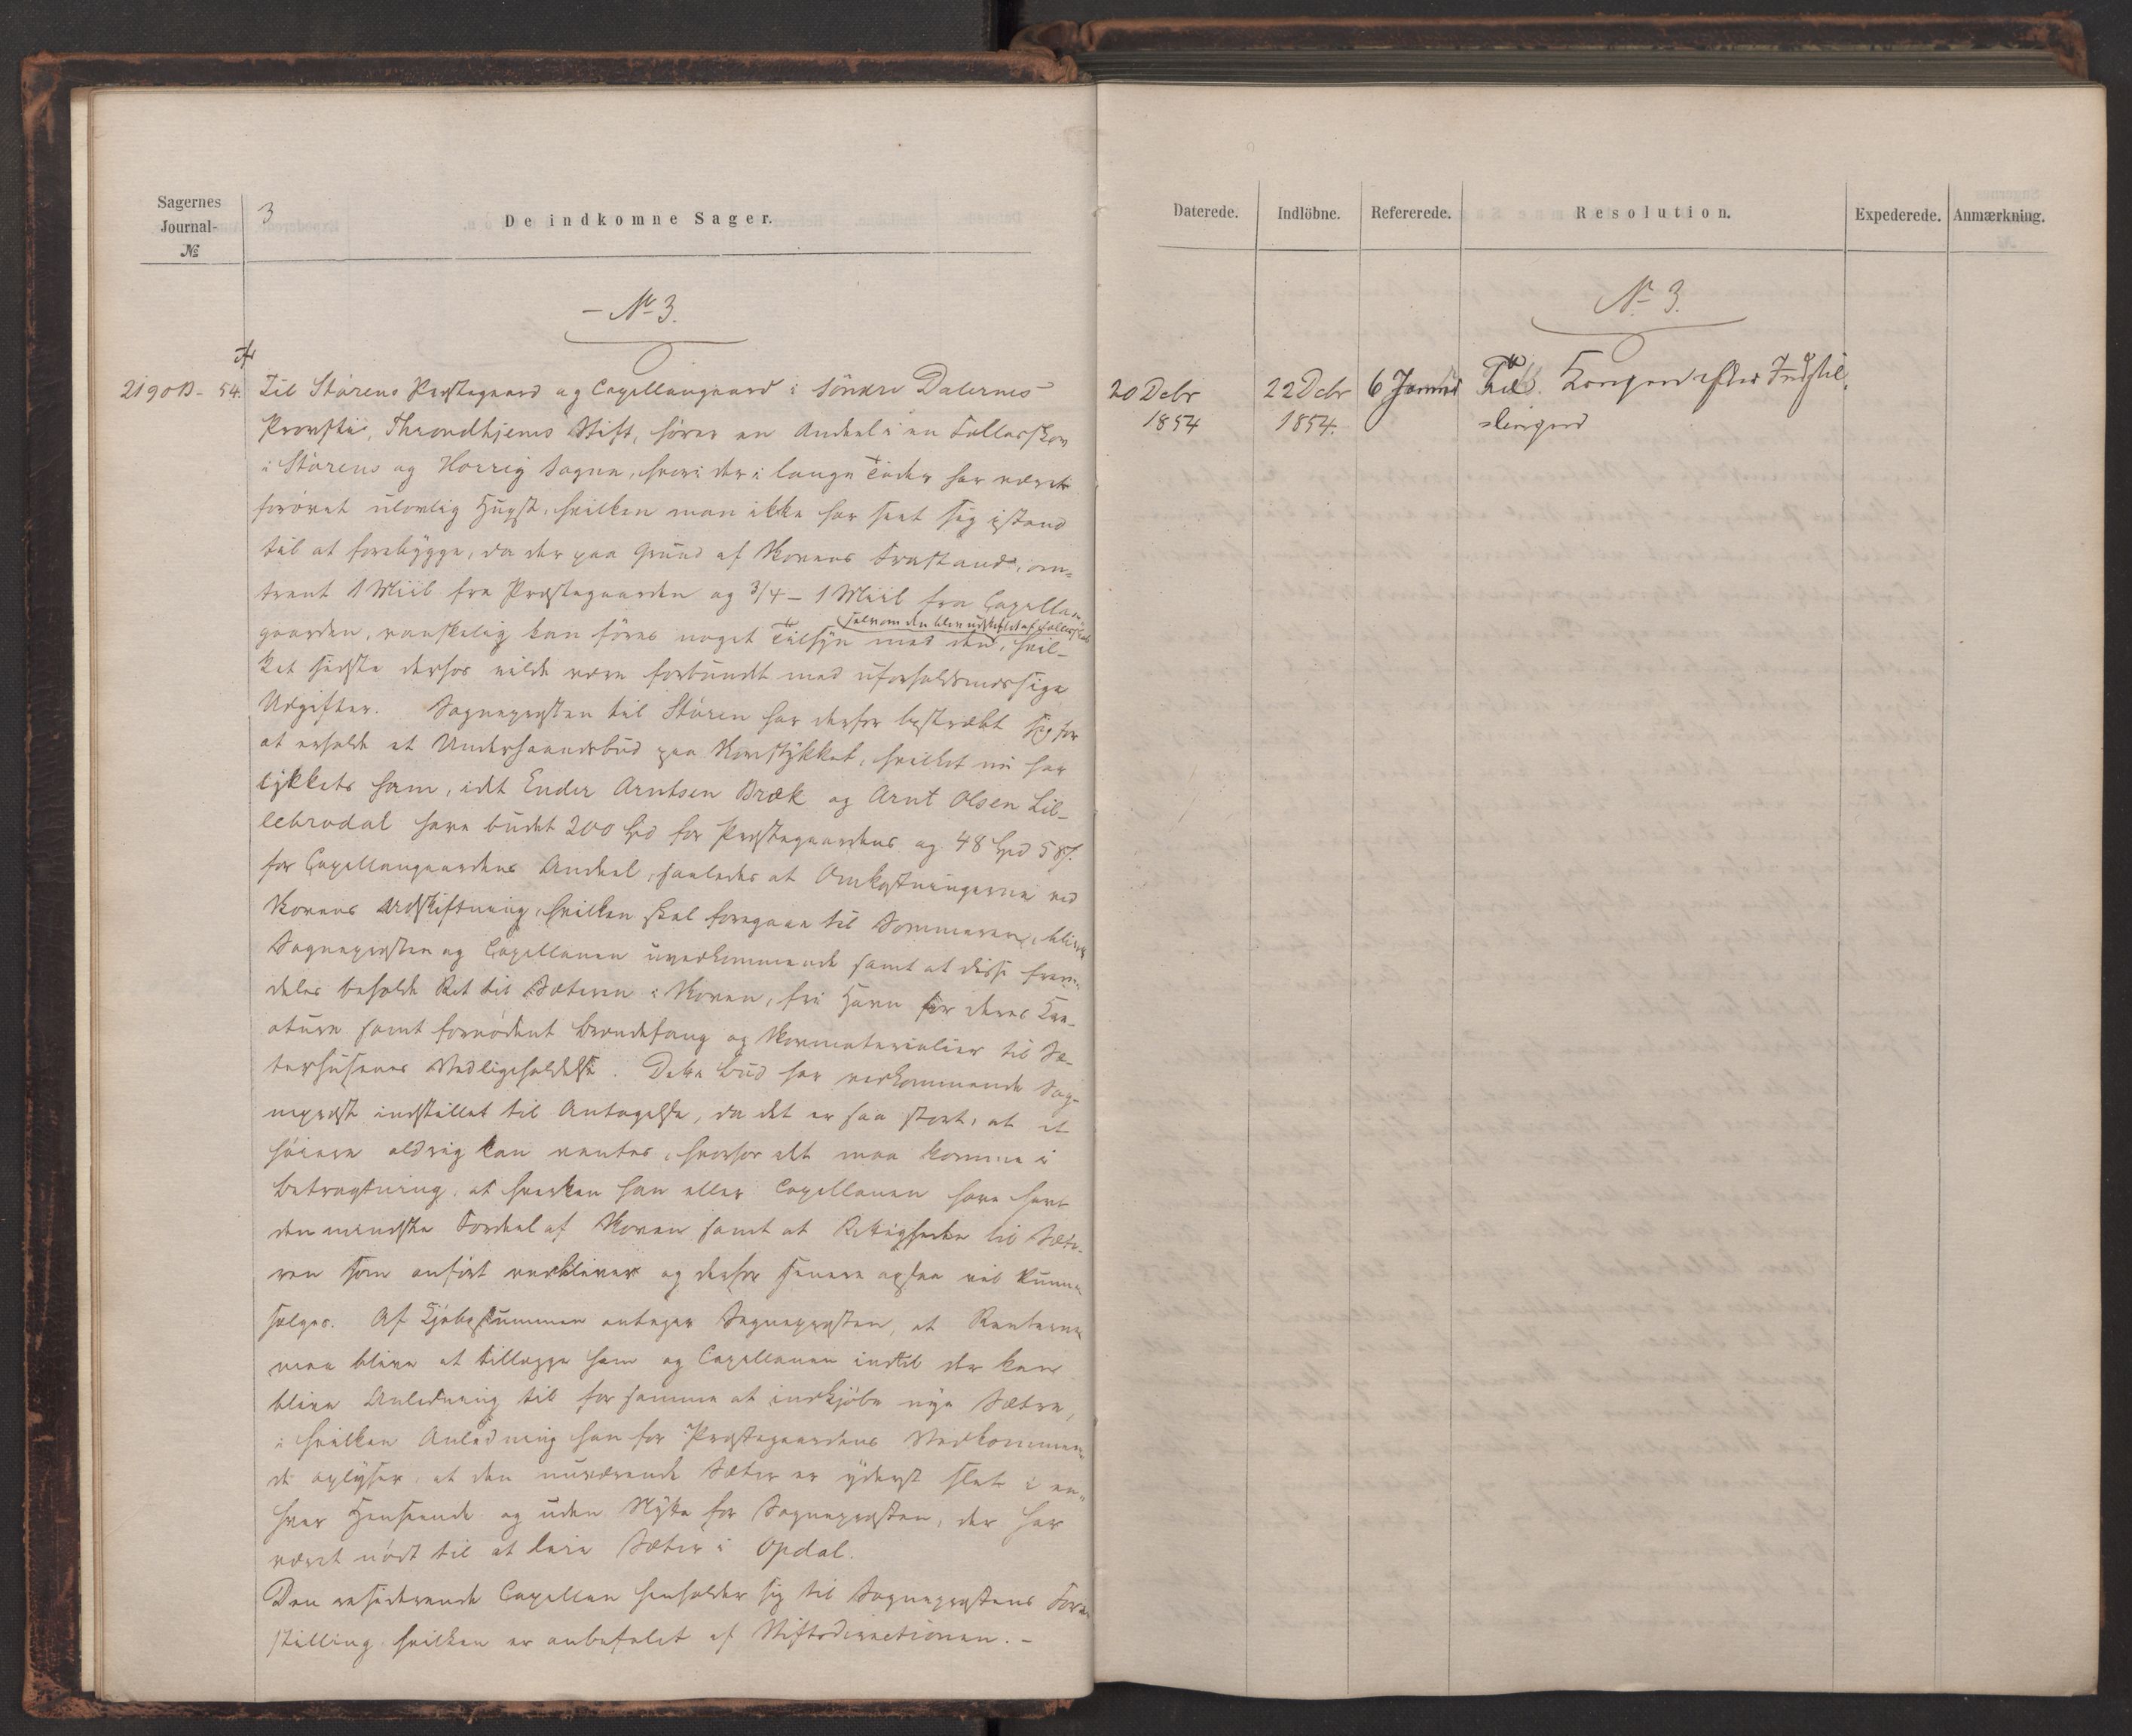 Sagernes
Journal-
№
3
De indkomne Sager.
- No 3.
2190B - 54.
Til Størens Præstegaard og Capellangaard i søndre Dalernes
Provsti, Throndhjems Stift, hører en Andeel i en Fællesskov
i Størens og Horrig Sogne, hvori der i lange Tider har været
forøvet ulovlig Hugst, hvilken man ikke har seet sig istand
til at forebygge, da der paa Grund af Skovens Frastand, om-
trent 1 Miil fra Præstegaarden og 3/4 - 1 Miil fra Capellan-
selv om den blev udskiftet af Fællesskab
gaarden, vanskelig kan føres noget Tilsyn med den, hvil-
ket sidste derhos vilde være forbundet med uforholdsmæssige
Udgifter. Sognepræsten til Støren har derfor bestræbt sig for
at erholde et Underhaandsbud paa Skovstykket, hvilket nu har
lykkets ham, idet Ender Arntsen Bræk og Arnt Olsen Lil-
lebrodal have budet 200 Spd for Præstegaardens og 48 Spd 58 s.
for Capellangaardens Andeel, saaledes at Omkostningerne ved
Skovens Udskiftning, hvilken skal foregaae til Sommeren, blive
Sognepræsten og Capellanen uvedkommende samt at disse frem-
deles beholde Ret til Sæteren i Skoven, fri Havn for deres Kre-
aturer samt fornødent Brændefang og Skovmaterialier til Sæ-
terhusenes Vedligeholdelse. Dette Bud har vedkommende Sog-
nepræst indstillet til Antagelse, da det er saa stort, at et
høiere aldrig kan ventes, hvorhos det maa komme i
Betragtning, at hverken han eller Capellanen have havt
den mindste Fordeel af Skoven samt at Rettigheden til Sæte-
ren som anført vedbliver og derfor senere ogsaa vil kunne
sælges. Af Kjøbesummen antager Sognepræsten, at Renterne
maa blive at tillægge ham og Capellanen indtil der kan
blive Anledning til for samme at indkjøbe nye Sætre,
i hvilken Anledning han for Præstegaardens Vedkommen-
de oplyser, at den nuværende Sæter er yderst slet i en-
hver Henseende og uden Nytte for Sognepræsten, der har
været nødt til at leie Sæter i Opdal.
Den residerende Capellan henholder sig til Sognepræstens Fore-
stilling hvilken er anbefalet af Stiftsdirectionen. -
Daterede.
Indlöbne.
Refererede.
Resolution.
Expederede.
Anmærkning.
No 3.
20 Decbr
1854
22 Decbr
1854.
6 Januar
Kongen efter Indstil-
lingen